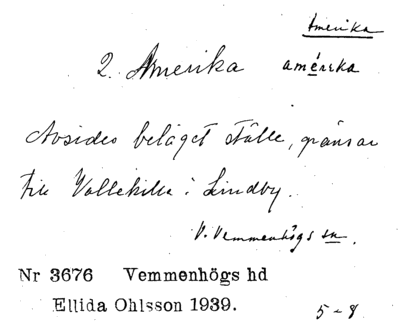 Amerika
2. Amerika amérika
Avsides beläget ställe, gränsar
till Vallekilla i Lindby.
V. Vemmenhögs sn.
Nr 3676 Vemmenhögs hd
Ellida Ohlsson 1939.
5-8